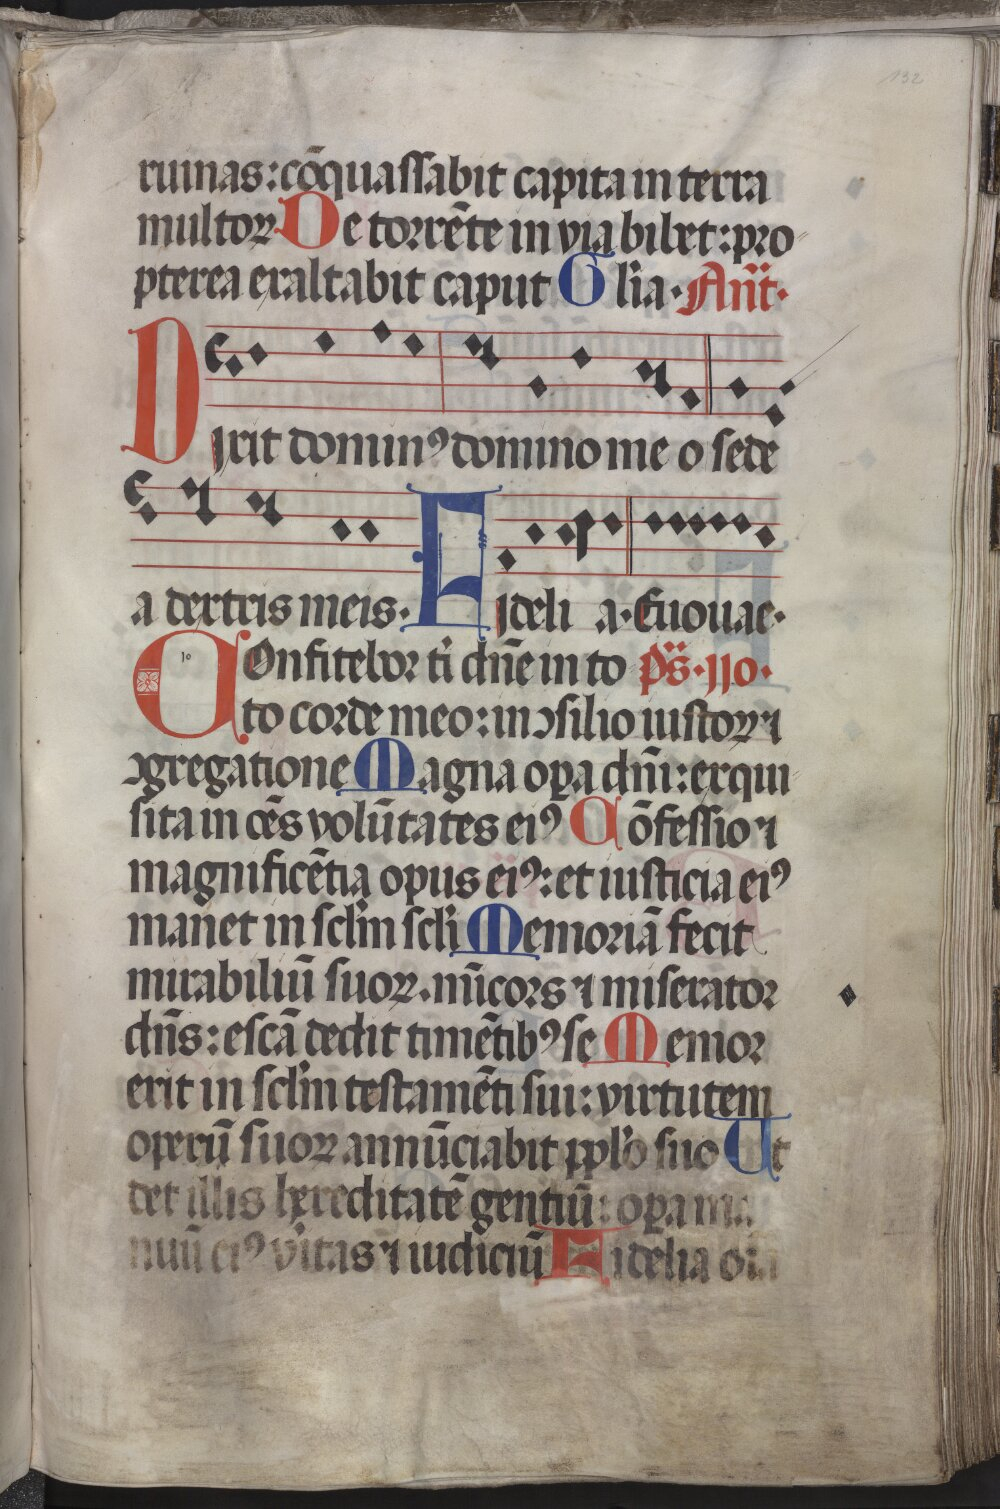 132
ruinas: cōquassabit capita in terra
multoꝝ De torrēte in via bibet: pro
pterea exaltabit caput Gl'ia · Añt ·
Dixit dominꝰ domino meo sede
a dextris meis · Fideli a · Euouae ·
COnfitebor ti dn̄e in to ps · 110 ·
to corde meo: in ↄsilio iustoꝝ ⁊
ↄgregatione Magna oꝑa dn̄i: exqui
sita in oēs volūtates eiꝰ Cōfessio ⁊
magnificētia opus eiꝰ: et iusticia eiꝰ
manet in scl'm scl'i Memoriā fecit
mirabiliū suoꝝ · mīcors ⁊ miserator
dn̄s: escā dedit timētibꝰ se Memor
erit in scl'm testamēti sui: virtutem
operū suoꝝ annūciabit ppl'o suo Ut
det illis hereditatē gentiū: oꝑa ma
nuū eiꝰ v'itas ⁊ iudiciū Fidelia oīa